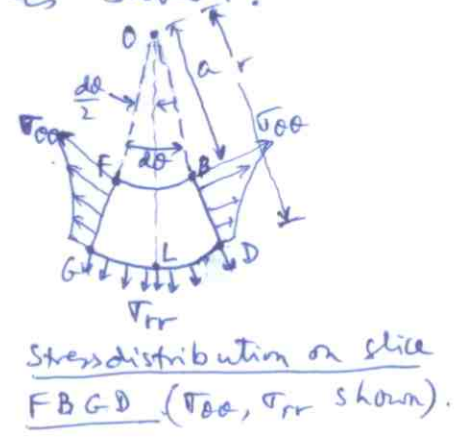 O
a
r
dθ/2
σθθ
σθθ
F
dθ
B
G
L
D
σrr
Stress distribution on slice
FBGD (σθθ, σrr shown).